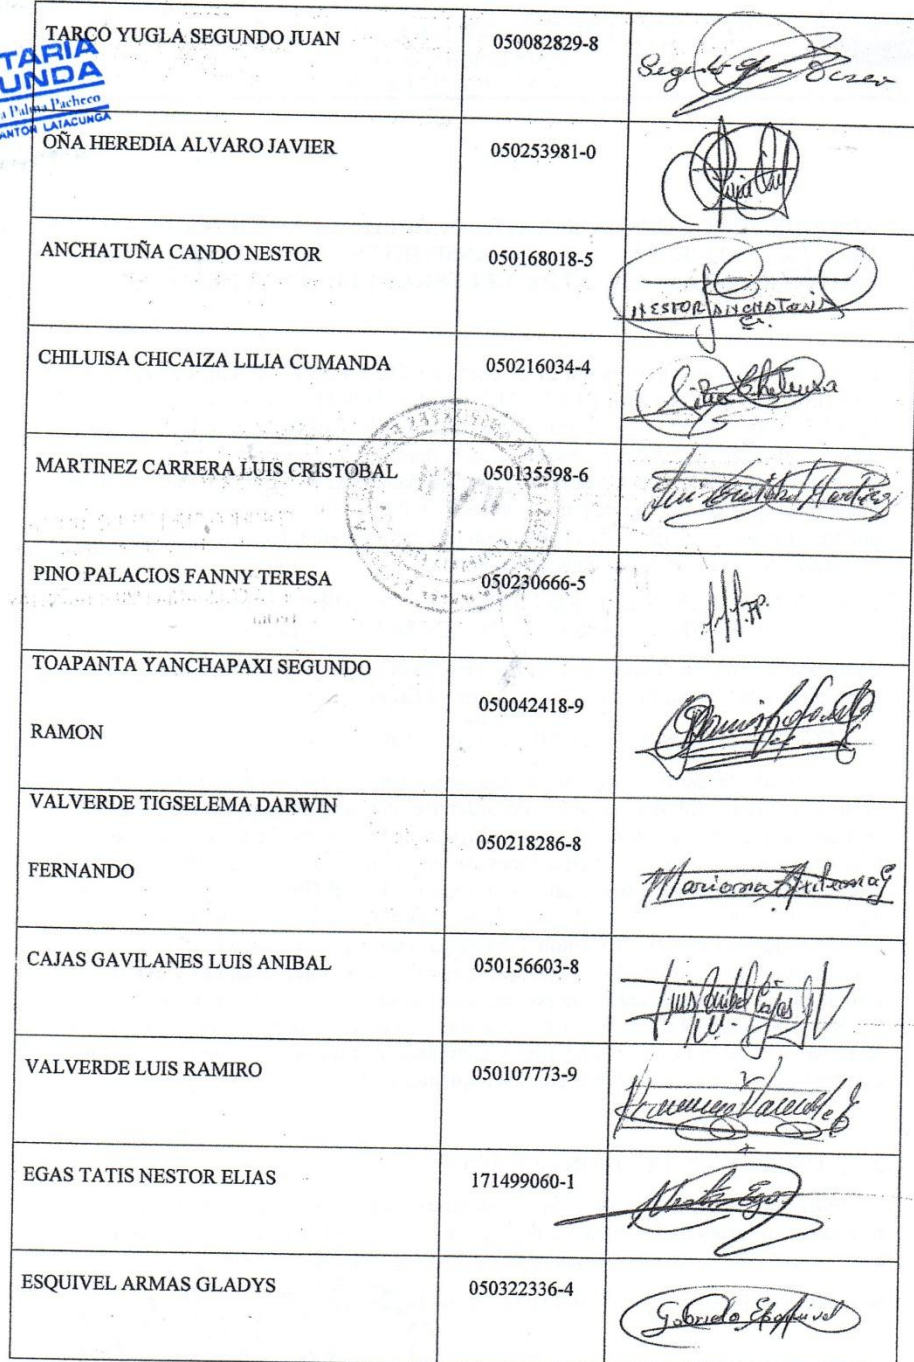 TARIA
UNDA
a Palma Pacheco
CANTON LATACUNGA
TARCO YUGLA SEGUNDO JUAN 050082829-8
Segundo Juan
OÑA HEREDIA ALVARO JAVIER 050253981-0
ANCHATUÑA CANDO NESTOR 050168018-5
NESTOR ANCHATUÑA
C.
CHILUISA CHICAIZA LILIA CUMANDA 050216034-4
MARTINEZ CARRERA LUIS CRISTOBAL 050135598-6
Luis Cristobal Martinez
PINO PALACIOS FANNY TERESA 050230666-5
TOAPANTA YANCHAPAXI SEGUNDO
RAMON
050042418-9
VALVERDE TIGSELEMA DARWIN
FERNANDO
050218286-8
Mariana
CAJAS GAVILANES LUIS ANIBAL 050156603-8
Luis Anibal Cajas
VALVERDE LUIS RAMIRO 050107773-9
EGAS TATIS NESTOR ELIAS 171499060-1
Nestor Egas
ESQUIVEL ARMAS GLADYS 050322336-4
Gabriela Esquivel